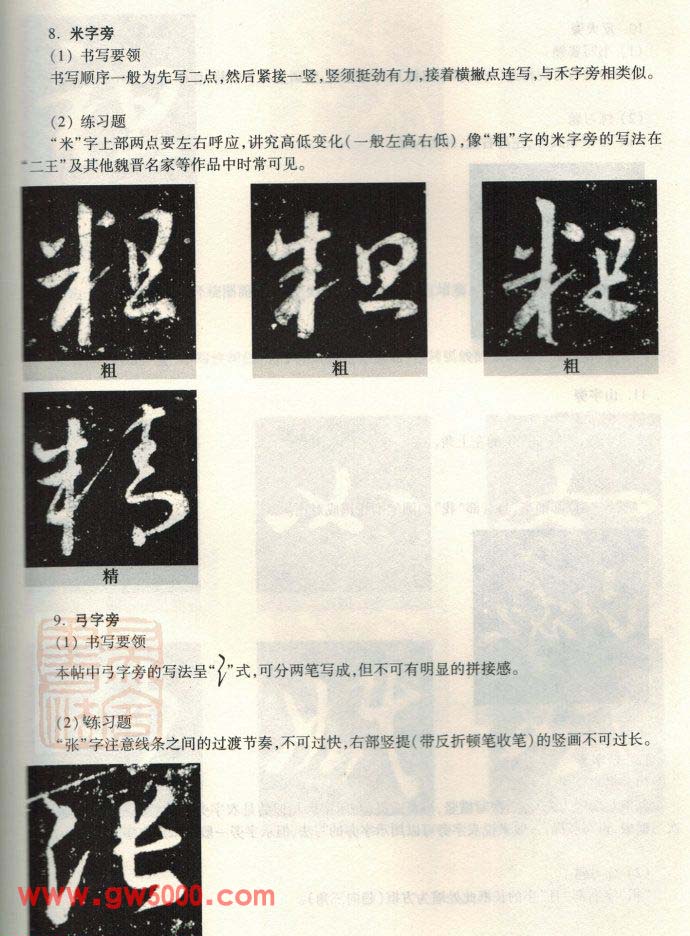 8. 米字旁
(1) 书写要领
书写顺序一般为先写二点,然后紧接一竖,竖须挺劲有力,接着横撇点连写,与禾字旁相类似。
(2) 练习题
“米”字上部两点要左右呼应,讲究高低变化(一般左高右低),像“粗”字的米字旁的写法在
“二王”及其他魏晋名家等作品中时常可见。
粗 粗 粗
粗 粗 粗
精
精
9. 弓字旁
(1) 书写要领
本帖中弓字旁的写法呈“”式,可分两笔写成,但不可有明显的拼接感。
(2) 练习题
“张”字注意线条之间的过渡节奏,不可过快,右部竖提(带反折顿笔收笔)的竖画不可过长。
张
www.gw5000.com